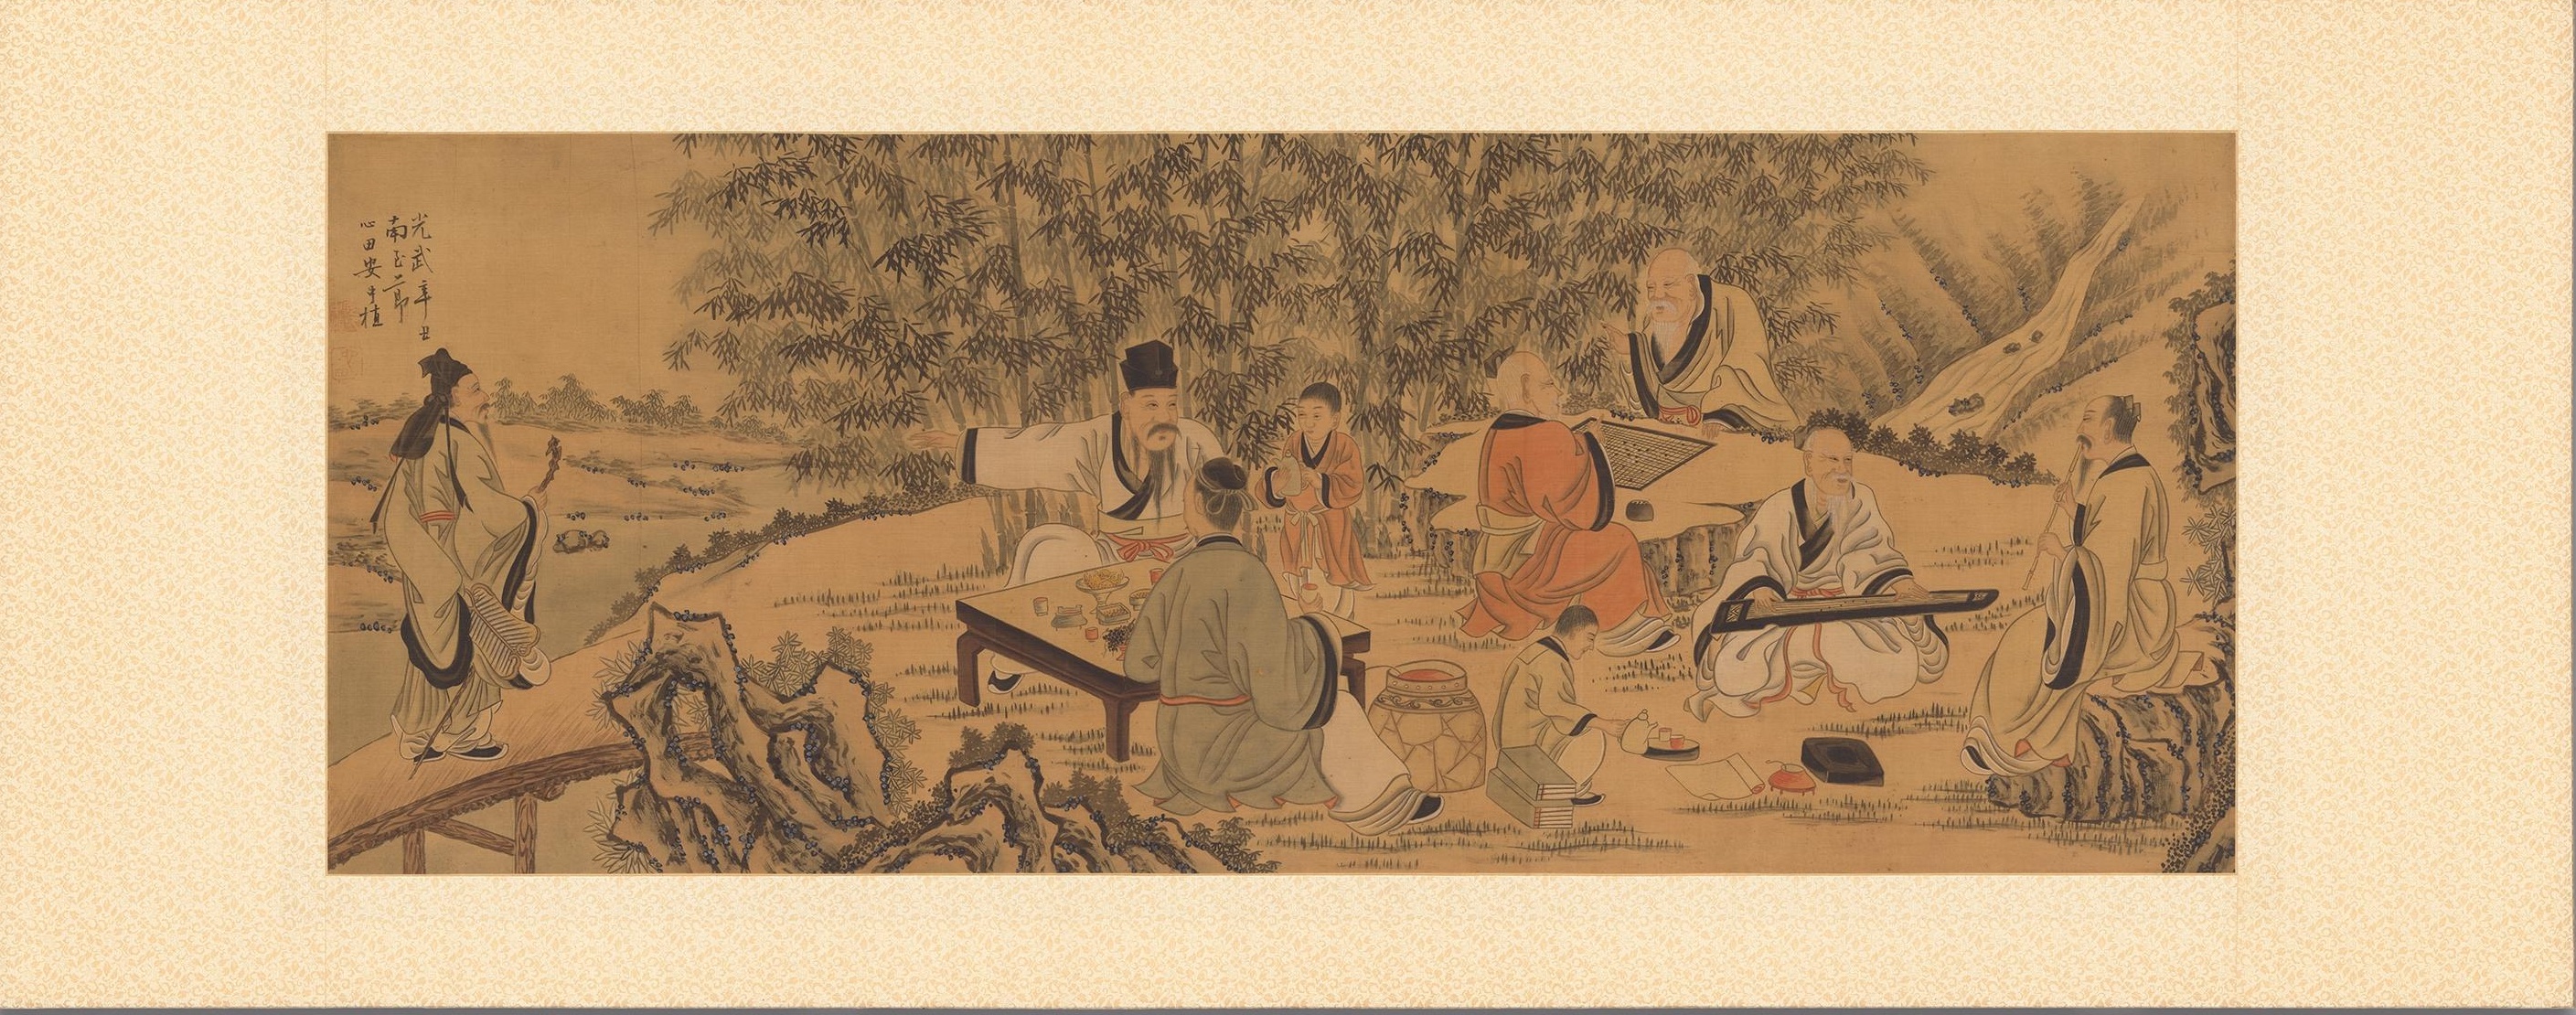 光武辛丑
南至二節
心田安中植